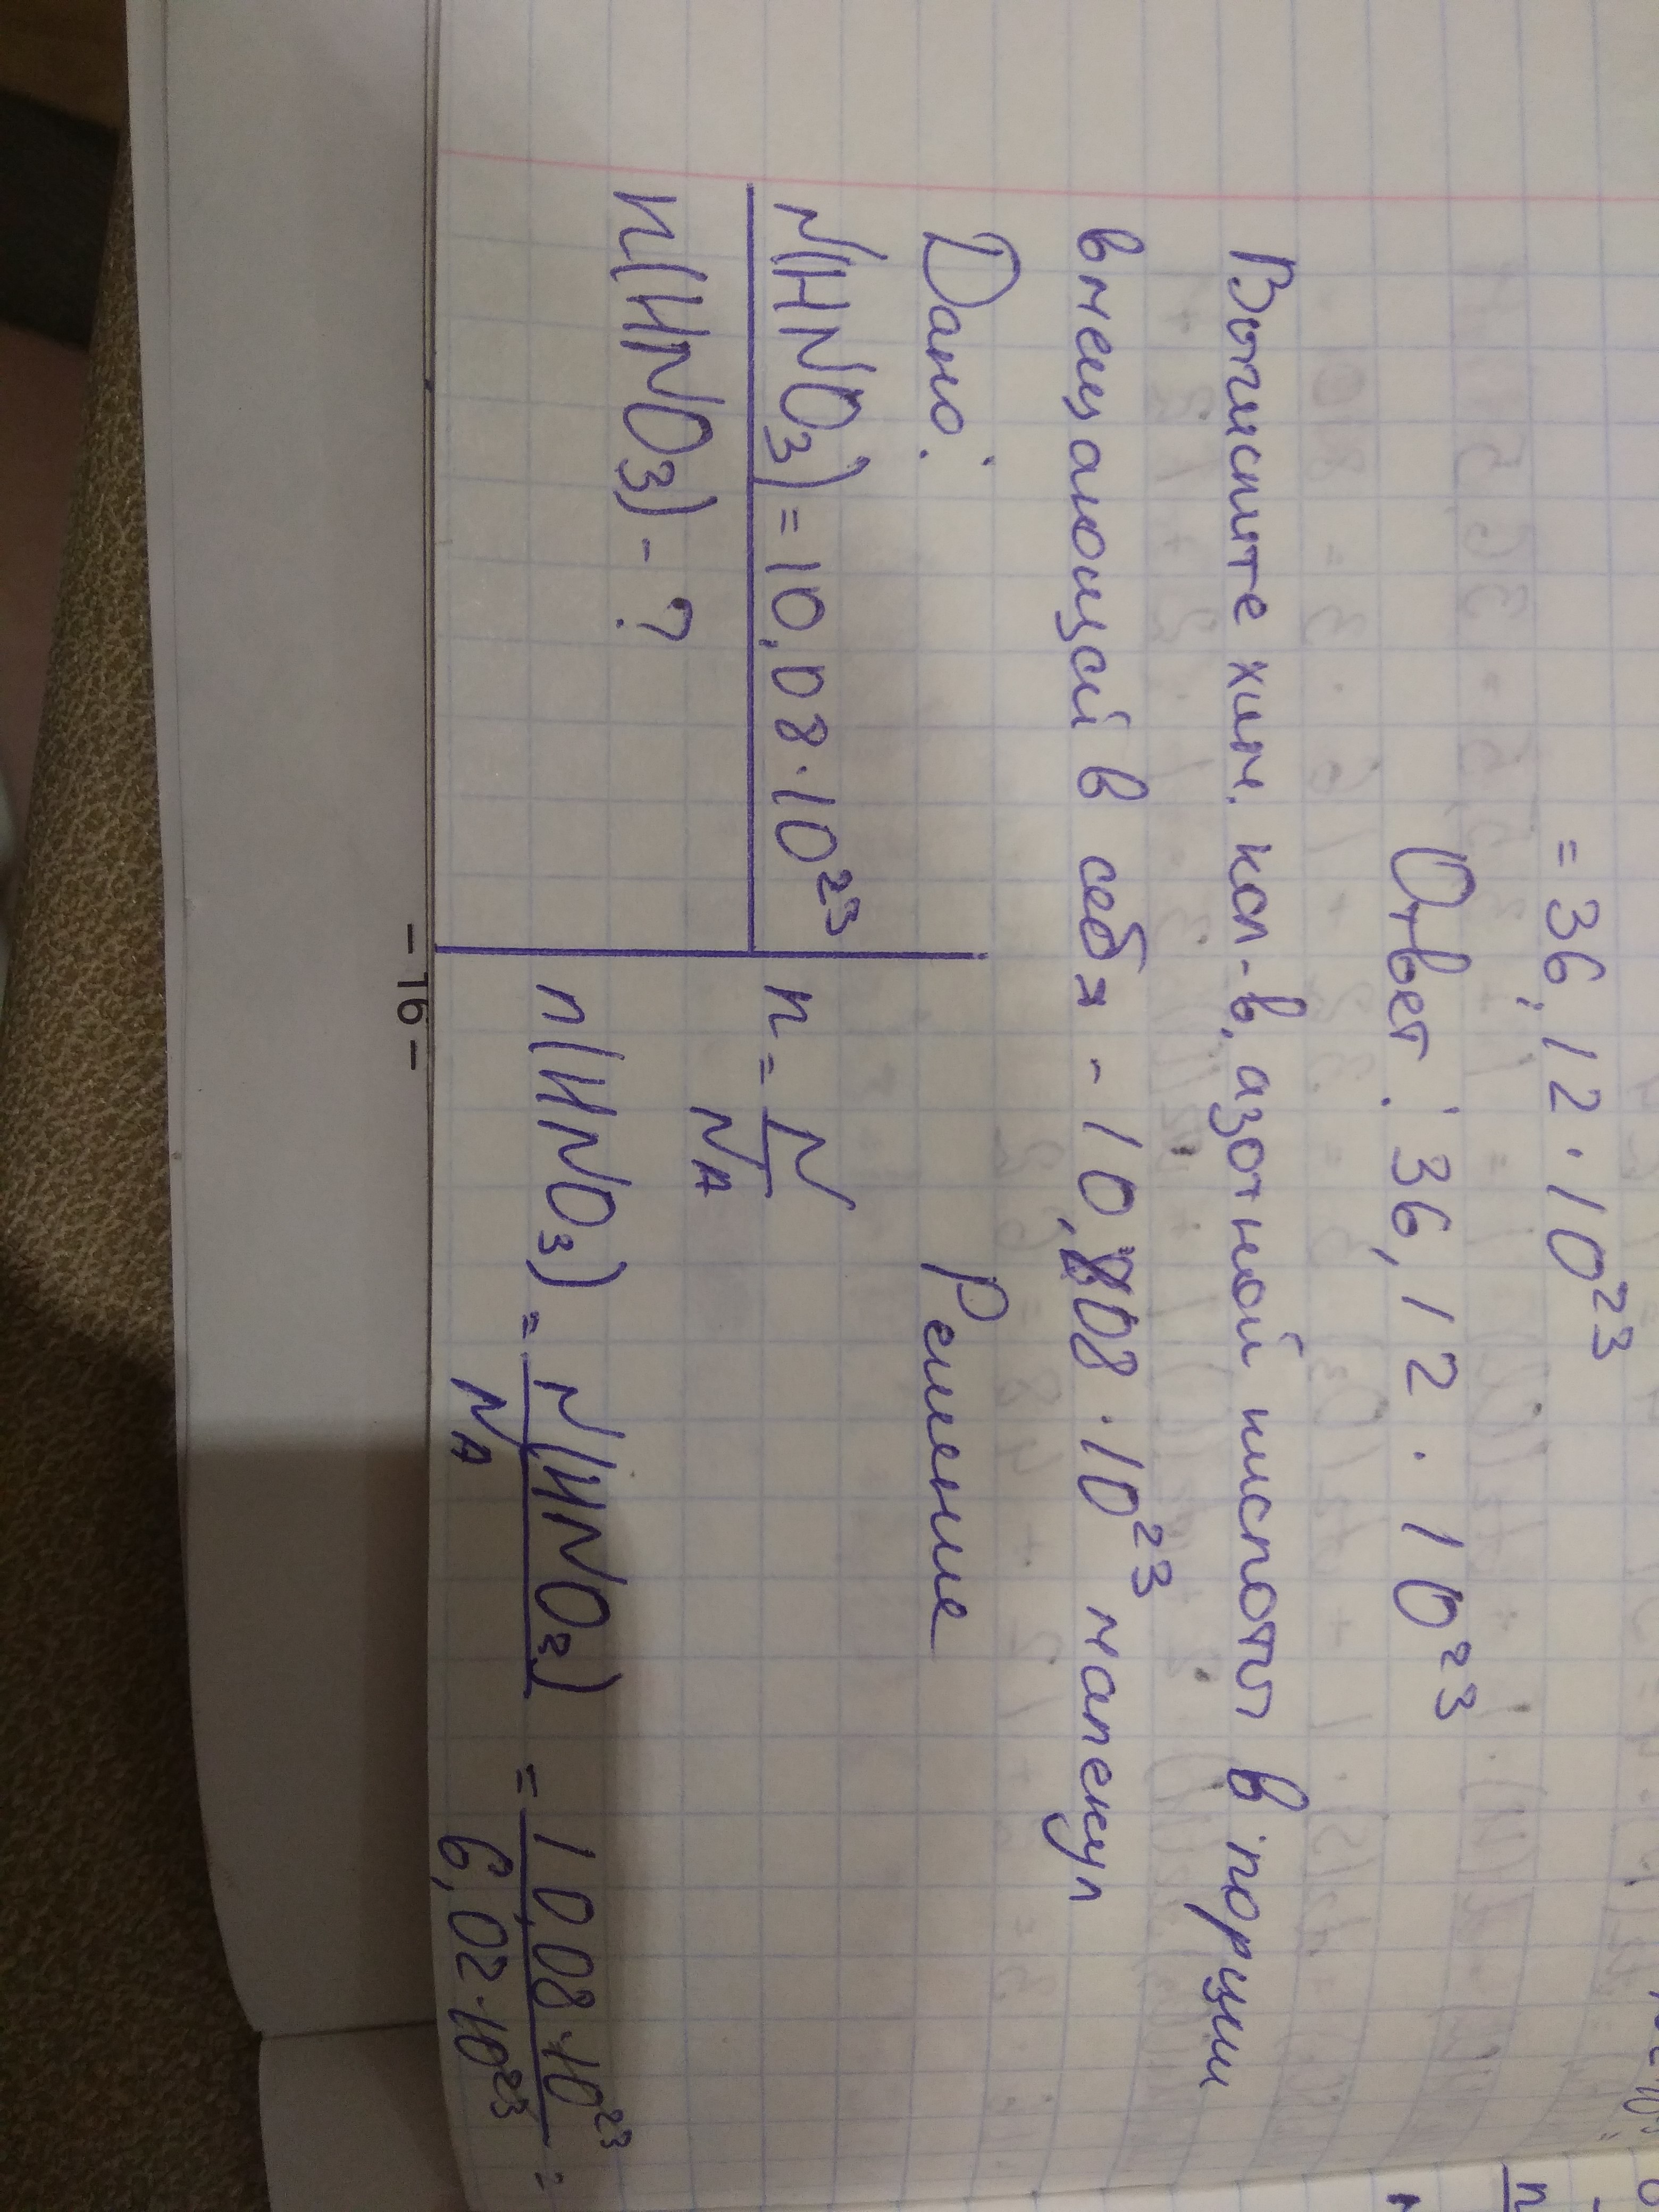 = 36,12 · 10²³
Ответ: 36,12 · 10²³
Вычислите хим. кол-в, азотной кислоты в порции
вмещающей в себя - 10,08 · 10²³ малекул
Дано: Решение
N(HNO₃) = 10,08 · 10²³
n = N/Nᴀ
n(HNO₃) - ?
n(HNO₃) = N(HNO₃)/Nᴀ = 10,08 · 10²³/6,02 · 10²³ =
- 16 -